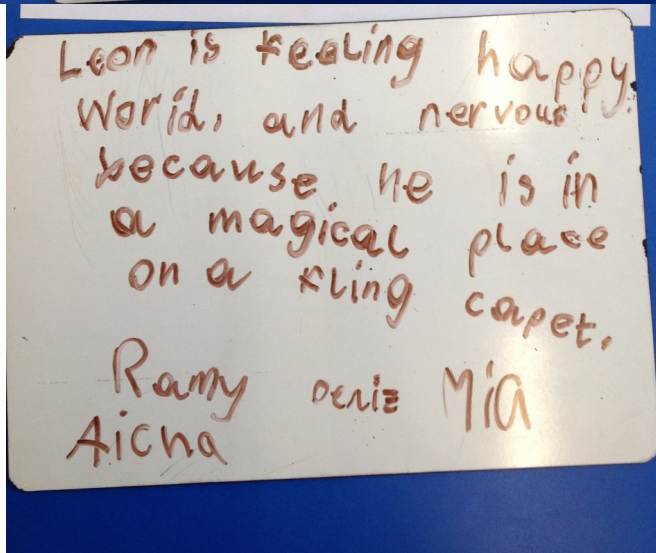 Leon is feeling happy.
Worid, and nervous
because he is in
a magical place
on a fling capet.
Ramy Deniz Mia
Aicha